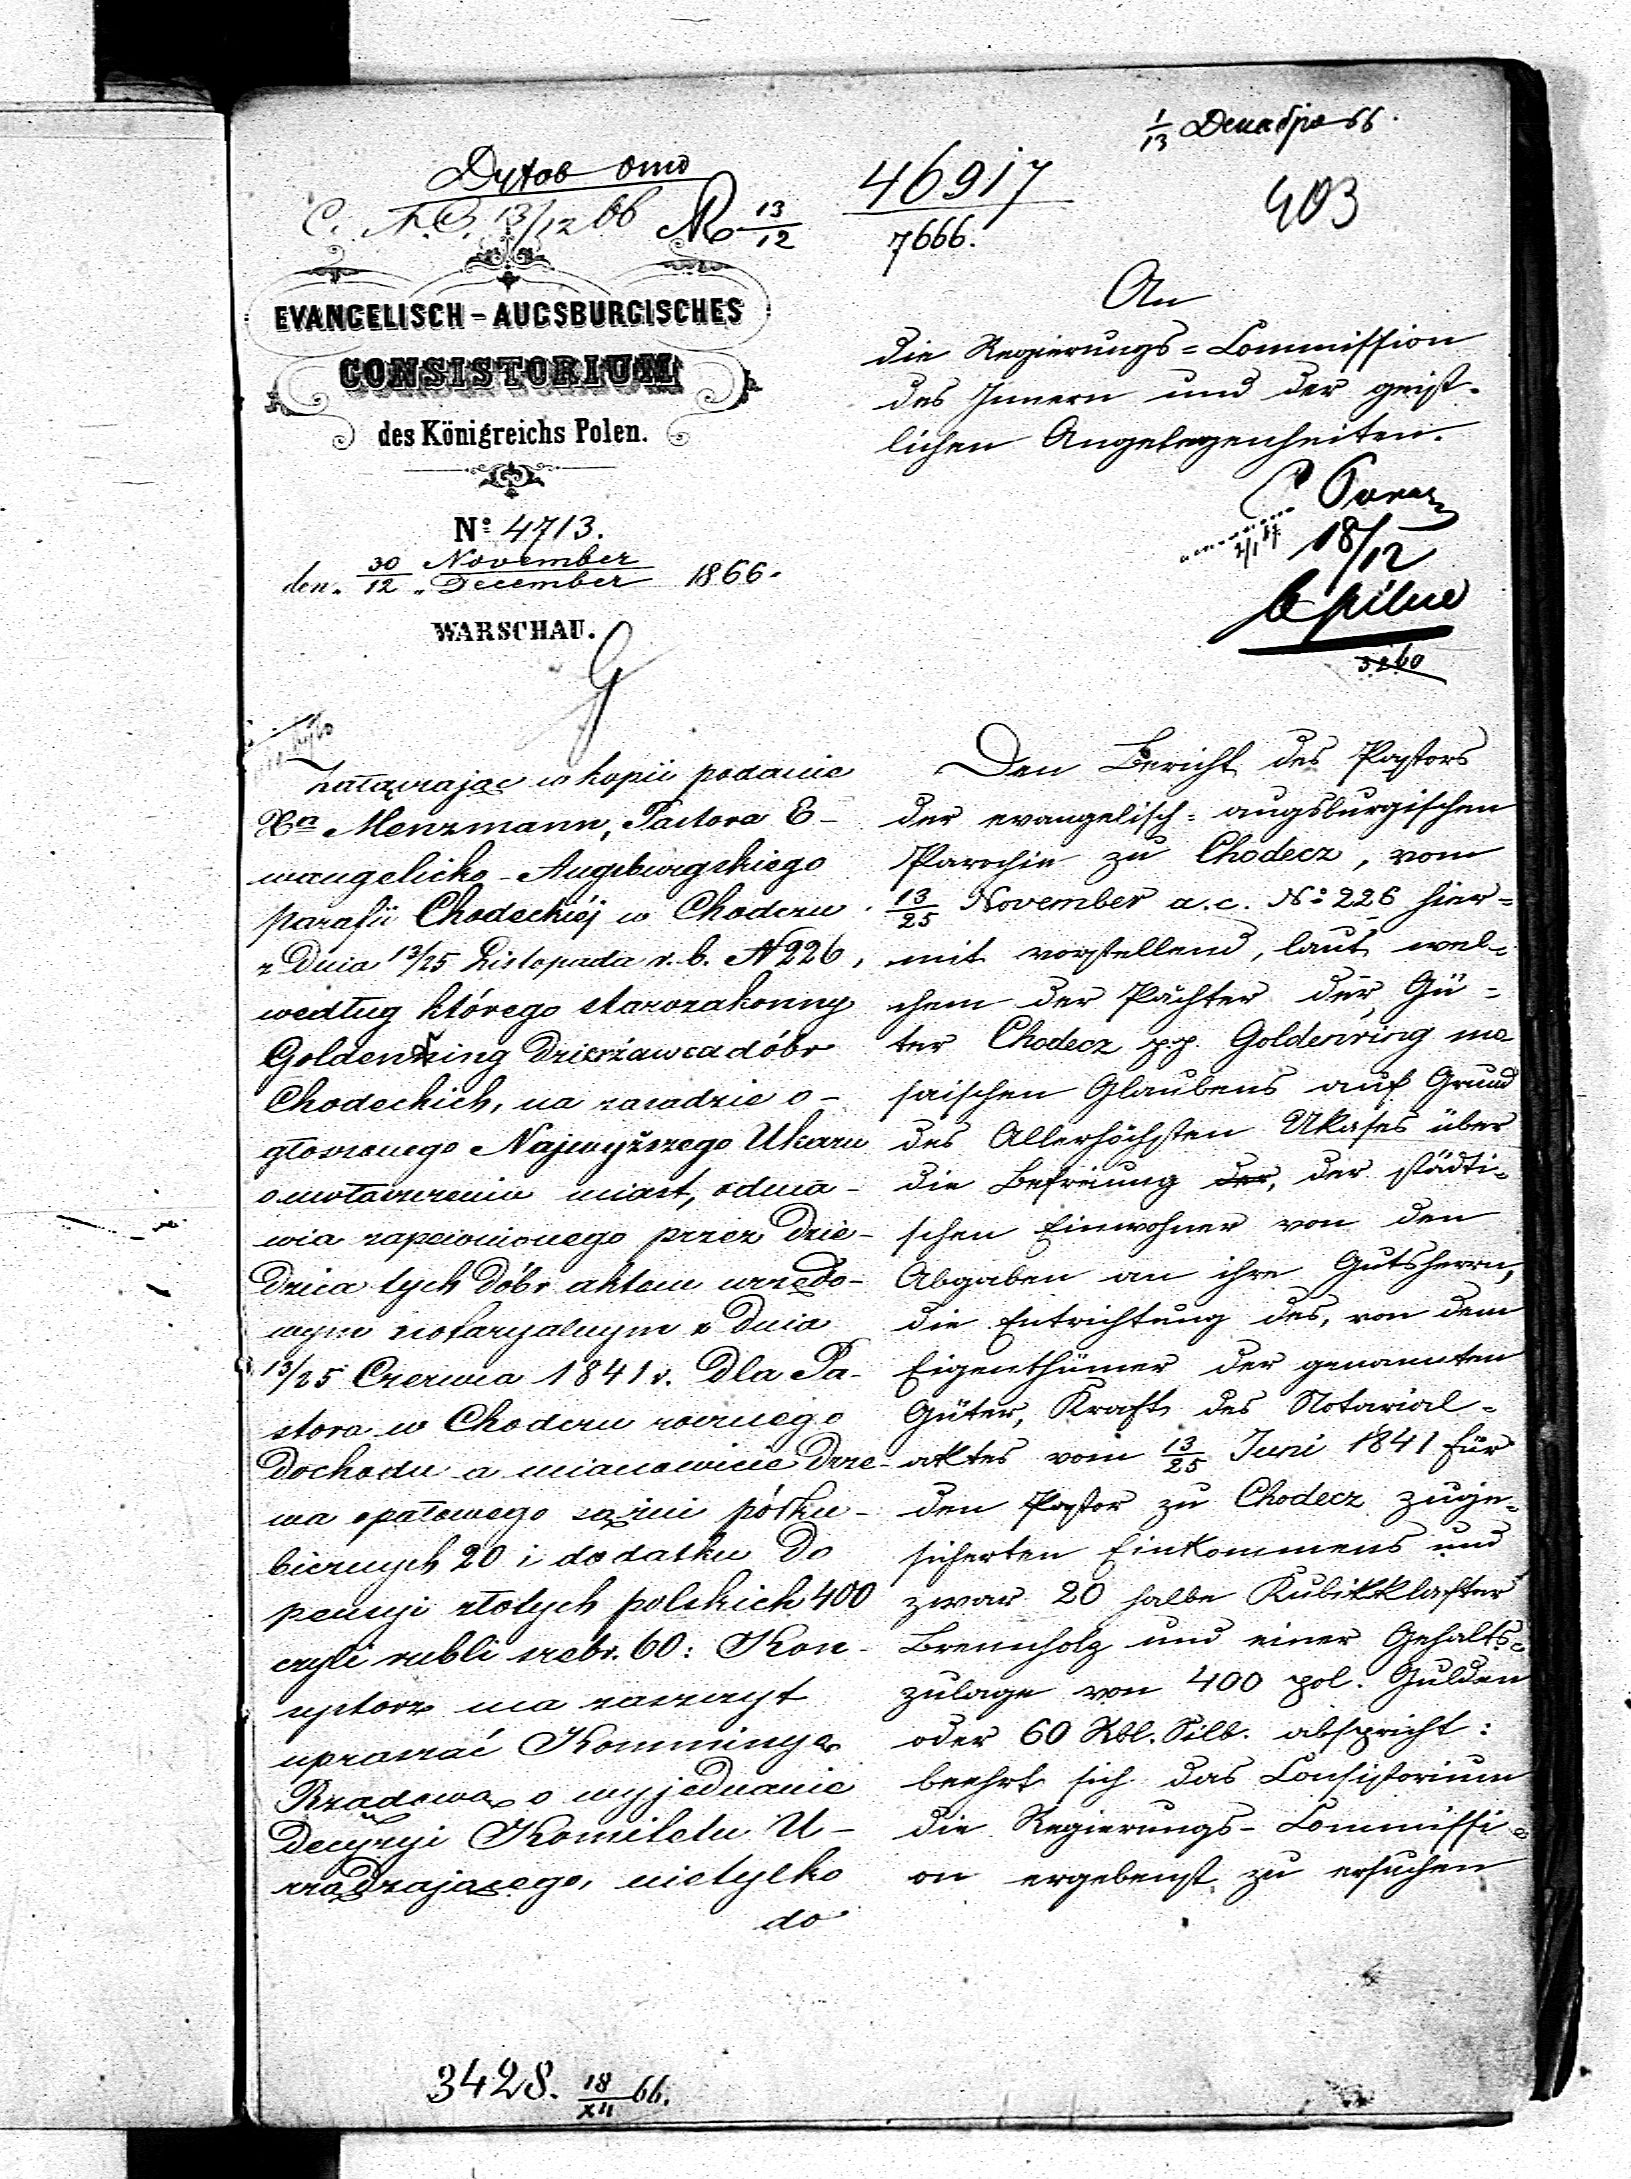 1/13 Декабря 66.
46917
7666.
403
13/12
EVANGELISCH-AUGSBURGISCHES
CONSISTORIUM
des Königreichs Polen.
№ 4713.
den 30/12 November/December 1866.
WARSCHAU.
An
die Regierungs-Commission
des Innern und der geist-
lichen Angelegenheiten.
18/12
pilne
Załączając w kopii podanie
Xa Menzmann, Pastora E-
wangelicko-Augsburgskiego
parafii Chodeckiéj w Chodczu
z Dnia 13/25 Listopada r. b. N 226,
według którego starozakonny
Goldenring Dzierżawca dóbr
Chodeckich, na zasadzie o-
głoszonego Najwyższego Ukazu
o uwłaszczeniu miast, odma-
wia zapewnionego przez Dzie-
dzica tych Dóbr aktem urzędo-
wym notaryalnym z Dnia
13/25 Czerwca 1841 r. Dla Pa-
stora w Chodczu rocznego
Dochodu a mianowicie Drze-
wa opałowego sążni półku-
bicznych 20 i dodatku Do
pensyi złotych polskich 400
czyli rubli srebr. 60: Kon-
systorz ma zaszczyt
upraszać Kommissyę
Rządową o wyjednanie
Decyzyi Komitetu U-
rządzającego, nietylko
do
Den Bericht des Pastors
der evangelisch-augsburgischen
Parochie zu Chodecz, vom
13/25 November a. c. № 226 hier-
mit vorstellend, laut wel-
chem der Pächter der Gü-
ter Chodecz pp. Goldenring mo
saischen Glaubens auf Grund
des Allerhöchsten Ukases über
die Befreiung der, der städti-
schen Einwohner von den
Abgaben an ihre Gutsherrn,
die Entrichtung des, von dem
Eigenthümer der genannten
Güter, Kraft des Notarial-
aktes vom 13/25 Juni 1841 für
den Pastor zu Chodecz zuge-
sicherten Einkommens und
zwar 20 halbe Kubikklafter
Brennholz und einer Gehalts-
zulage von 400 pol. Gulden
oder 60 Rbl. Silb. abspricht:
beehrt sich das Consistorium
die Regierungs-Commissi-
on ergebenst zu ersuchen
3428. 18/XII 66.